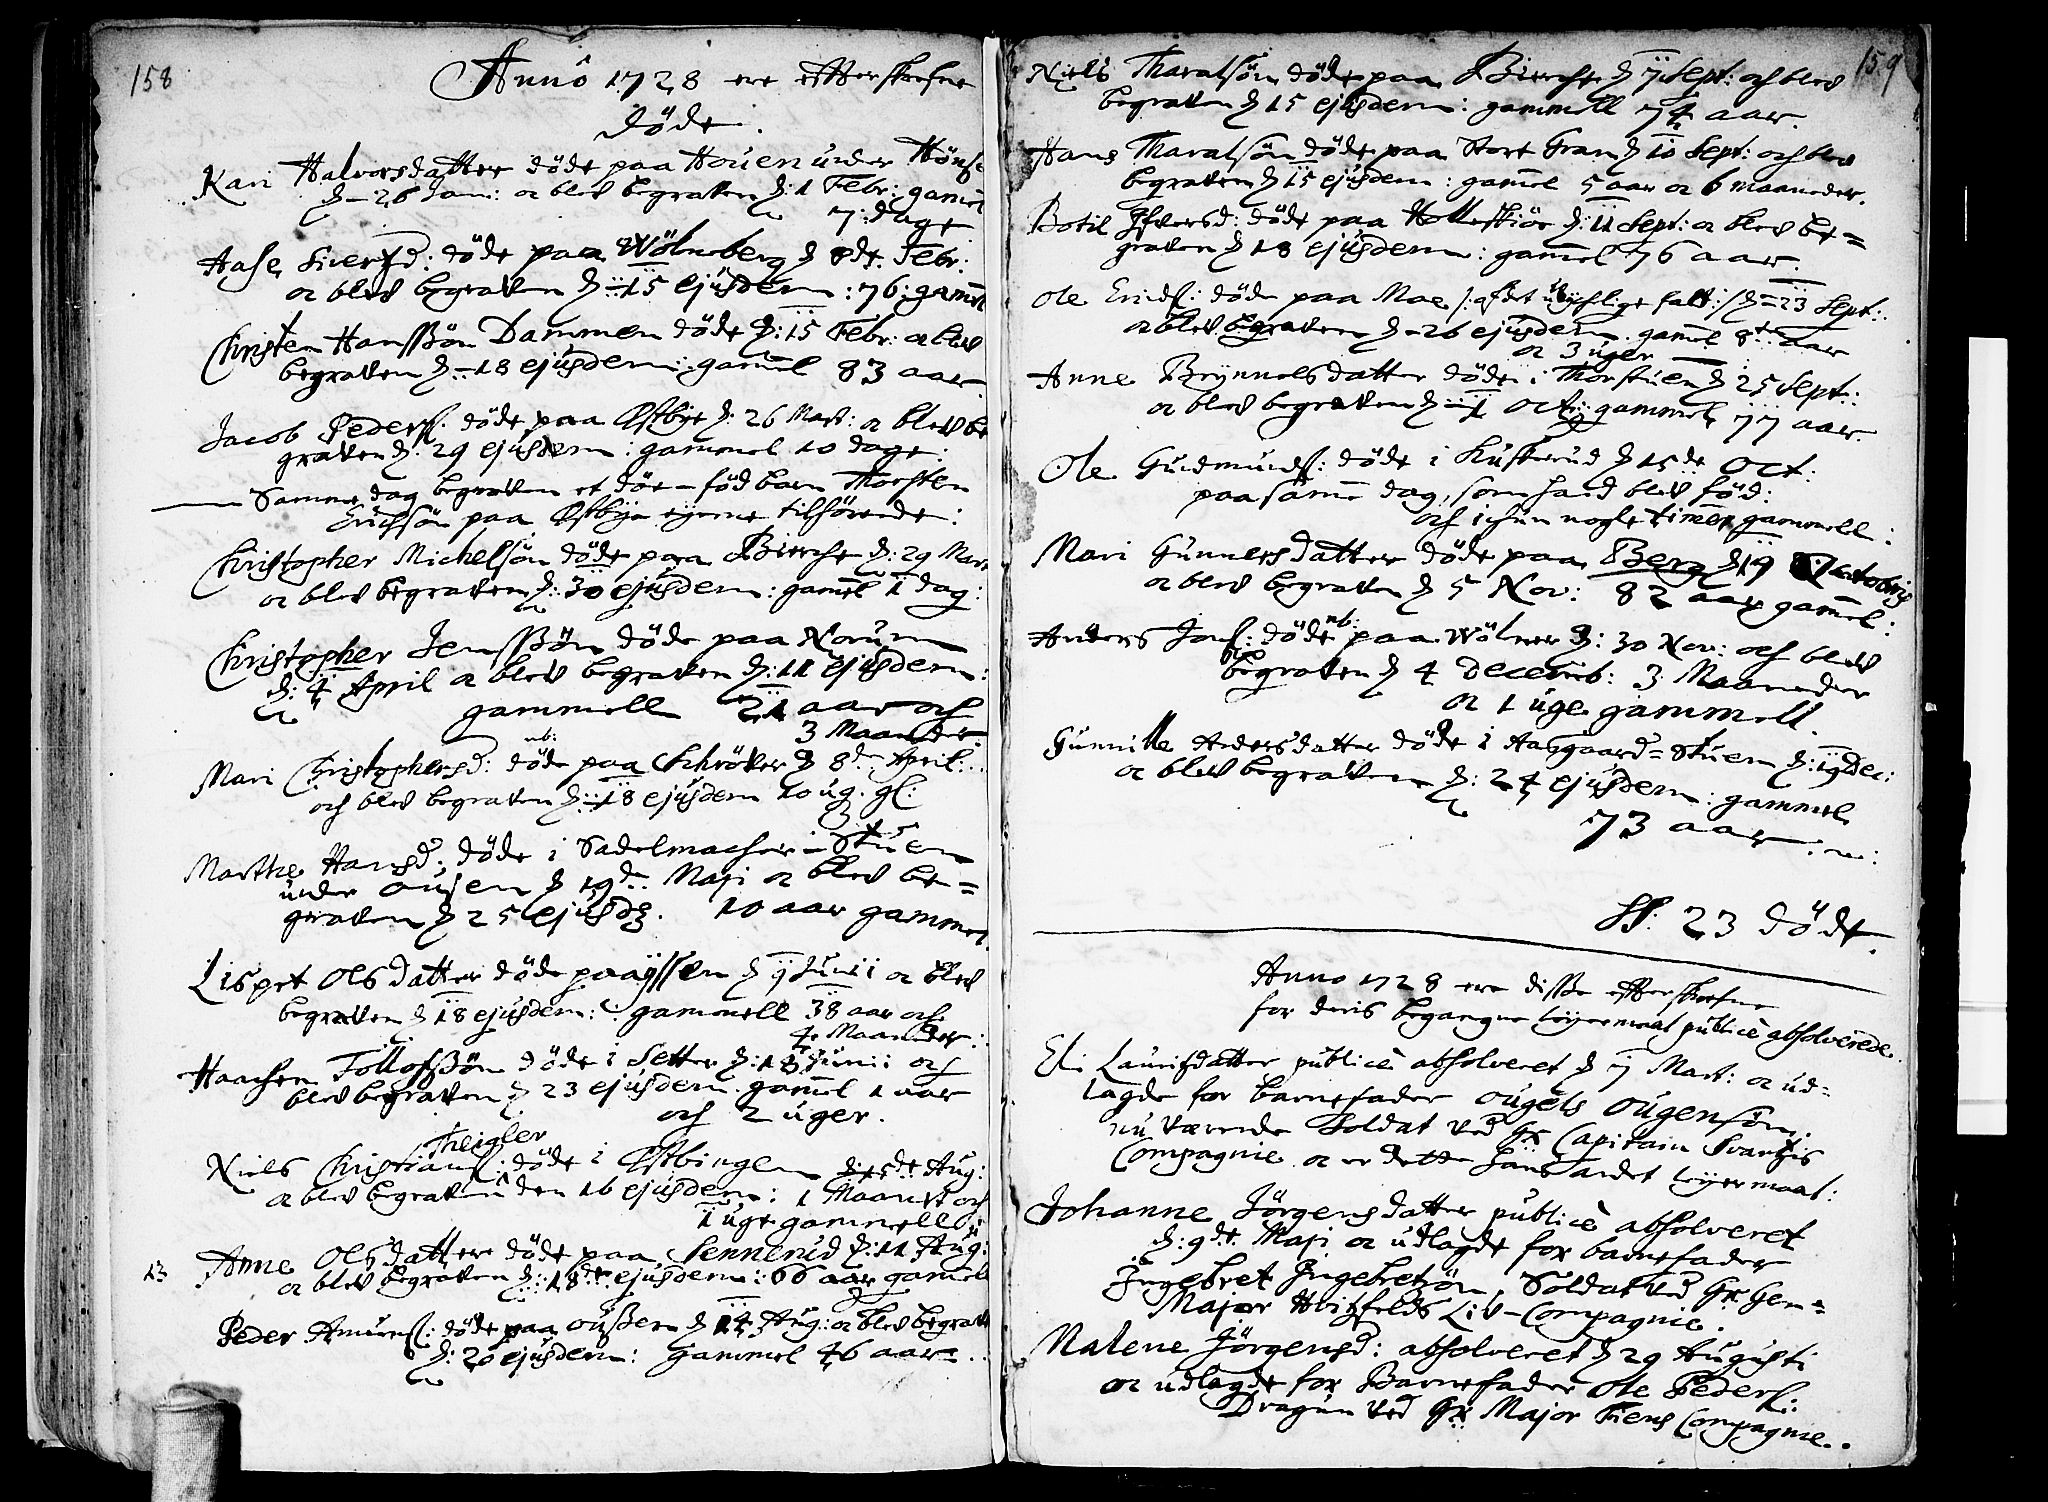 158
Annô 1728 ere effterskrefne
døde.
Kari Halvorsdatter døde paa Houen under Høns
d. 26 Jan: oc blev begraven d: 1 Febr: gamel
7: dage
Aase Siverzd: døde paa Wølneberg d 8de Febr:
oc blev begraven d: 15 ejusdem: 76: gamel
Christen Hanssøn Dammen døde d: 15 Febr: oc blev
begraven d: 18 ejusdem: gamel 83 aar
Jacob Peders: døde paa Østbye d: 26 Mart: oc blev be
graven d: 29 ejusdem: gammel 10 dage:
Samme dag begraven et død-fød barn Thorsten
Erichsøn paa Østbye eyerne tilhørende:
Christopher Michelsøn døde paa Bierche d: 29 Mart
oc blev begraven d: 30 ejusdem: gamel 1 dag:
Christopher Jenssøn døde paa Norum
d: 4 April oc blev begraven d: 11 ejusdem:
gammell 21 aar och
3 Maaneder:
nb:
Mari Christophersd: døde paa Schrøver d 8de April:
och blev begraven d: 18 ejusdem 10 ug. gl:
Marthe Hansd: døde i Sadelmacher-Stuen
under Ousen d 19de Maji oc blev be=
graven d 25 ejusd. 10 aar gammel
Lispet Olsdatter døde paa d 9 Junii oc blev
begraven d 18 ejusdem: gammell 38 aar och
4 Maaneder:
Haachen Tollofssøn døde i Setter d: 18 Junii och
blev begraven d 23 ejusdem gamel 1 aar
och 2 uger.
Theigler
Niels Christians: døde i Østbingen d: 15de Aug:
oc blev begraven den 16 ejusdem: 1 Maanet och
1 uge gammell:
13 Anne Olsdatter døde paa Sennerud d: 11 Aug:
oc blev begraven d: 18de ejusdem: 66 aar gamell
Peder Amunds: døde paa Oussen d 14 Aug: oc blev begrave
d: 20 ejusdem: gammel 46 aar:
159
Niels Tharalsøn døde paa Bierche d 7 Sept: och blev
begraven d 15 ejusdem: gammell 74 aar.
Hans Tharalsøn døde paa Store Gran d 10 Sept: och blev
begraven d 15 ejusdem: gamel 5 aar oc 6 maaneder.
Botil Ifversd: døde paa d: 11 Sept: oc blev be=
graven d 18 ejusdem: gamel 76 aar.
Ole Erichs: døde paa Moe /: af det ulychlige fald:/ d 23 Sept:
oc blev begraven d 26 ejusdem gamel 8te aar
oc 3 uger
Anne Brynnelsdatter døde i Thorstuen d 25 Sept:
oc blev begraven d 1 Oct: gammel 77 aar.
Ole Gudmunds: døde i Kusserud d 15de Oct:
paa samme dag, som hand blev fød:
och ichun nogle timer gammell:
Mari Gunnersdatter døde paa Berg d 19 Octobris
oc blev begraven d 5 Nov: 82 aar gamel:
nb:
Anders Jons: døde paa Wølner d: 30 Nov: och blev
begraven d 4 Decemb: 3 Maaneder
oc 1 uge gammell.
Gunnille Andersdatter døde i Aasgaard=Stuen d: 19 Dec:
oc blev begraven d: 24 ejusdem: gammel
73 aar.
SS: 23 døde.
Anno 1728 ere disse effterskrefne
for deris begangne leyermaal publicè absolverede.
Eli Lauritsdatter publicè absolveret d 7 Mart: oc ud=
lagde for barnefader Ougels Ougensøn
nu værende Soldat ved Hr Capitain Svartzis
Compagnie oc er dette hans andet leyermaal:
Johanne Jørgensdatter publicè absolveret
d: 9de Maji oc udlagde for barnefader
Ingebret Ingebretsøn, Soldat ved Hr Gen=
Major Hvitzfelds Liv-Compagnie.
Malene Jørgensd: absolveret d 29 Augusti
oc udlagde for Barnefader Ole Peders:
Dragun ved Hr Major Compagnie.